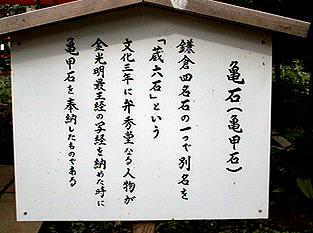 亀石(亀甲石)
鎌倉四名石の一つで別名を
「蔵六石」という
文化三年に弁秀堂なる人物が
金光明最王経の写経を納めた時に
亀甲石を奉納したものである